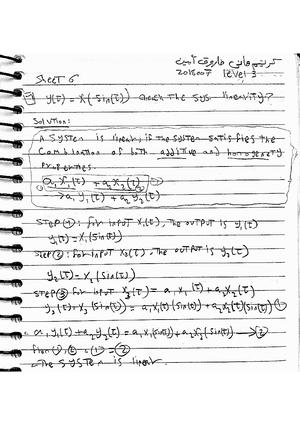 كريم هاني فاروق أمين
Level 3
Sheet 6
y(t) = x(sin(t)) check the sys linearity?
Solution:
A System is linear, if the system satisfies the
Combination of both additive and homogenety
Properties.
a₁ x₁(t) + a₂ x₂(t)
→ a₁ y₁(t) + a₂ y₂(t)
Step ①: for input x₁(t), the output is y₁(t)
y₁(t) = x₁(sin(t))
Step ②: for input x₂(t), the output is y₂(t)
y₂(t) = x₂(sin(t))
Step ③ for input x₃(t) = a₁x₁(t) + a₂x₂(t)
y₃(t) = x₃(sin(t)) = a₁x₁(t)(sin(t)) + a₂x₂(t)(sin(t)) ①
a₁y₁(t) + a₂y₂(t) = a₁x₁(sin(t)) + a₂x₂(sin(t)) → ②
① = ②
The System is linear